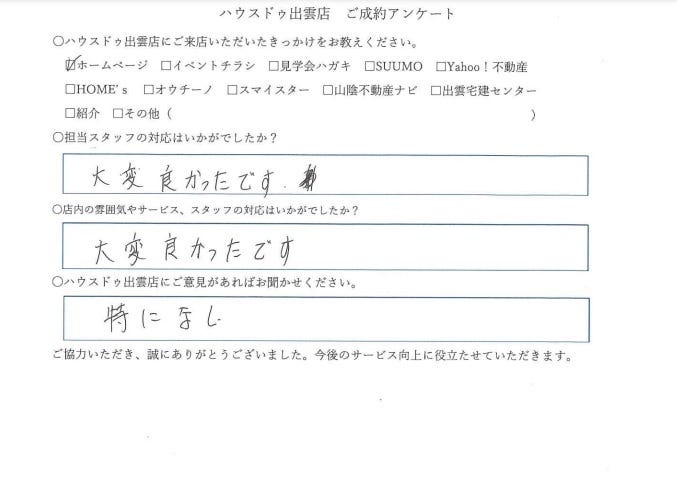 ハウスドゥ出雲店　ご成約アンケート
〇ハウスドゥ出雲店にご来店いただいたきっかけをお教えください。
☑ホームページ　□イベントチラシ　□見学会ハガキ　□SUUMO　□Yahoo！不動産
□HOME's　□オウチーノ　□スマイスター　□山陰不動産ナビ　□出雲宅建センター
□紹介　□その他（　　　　　　　　　　　　　　　　　　　　　　　　）
〇担当スタッフの対応はいかがでしたか？
大変良かったです.
〇店内の雰囲気やサービス、スタッフの対応はいかがでしたか？
大変良かったです
〇ハウスドゥ出雲店にご意見があればお聞かせください。
特になし
ご協力いただき、誠にありがとうございました。今後のサービス向上に役立たせていただきます。